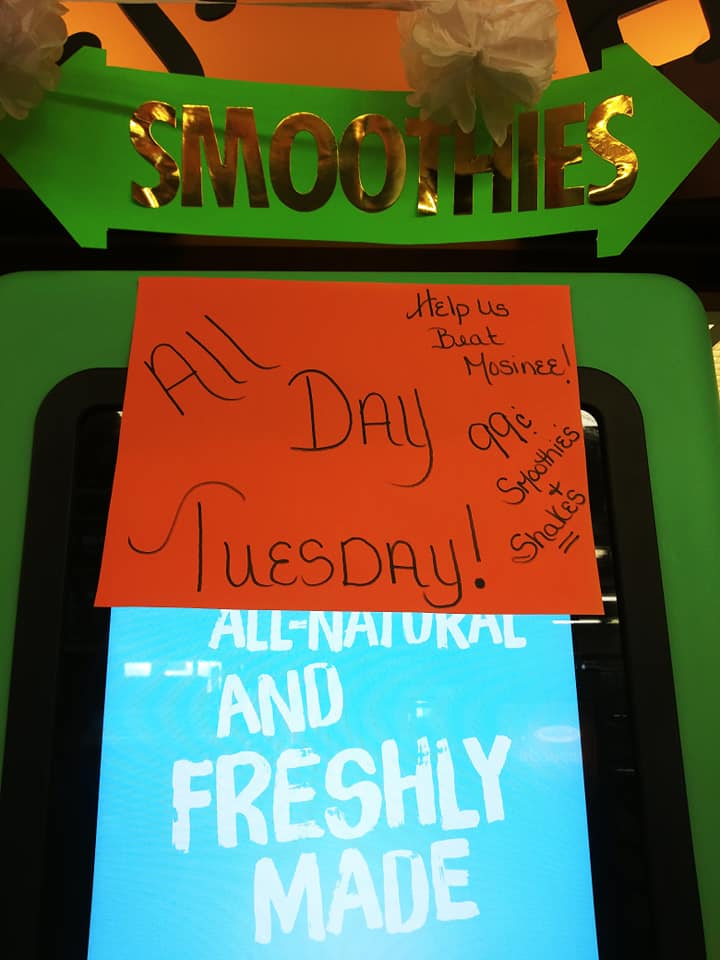 SMOOTHIES
All
Day
Tuesday!
Help us
Beat
Mosinee!
99¢
Smoothie's
+
Shakes
ALL-NATURAL
AND
FRESHLY
MADE